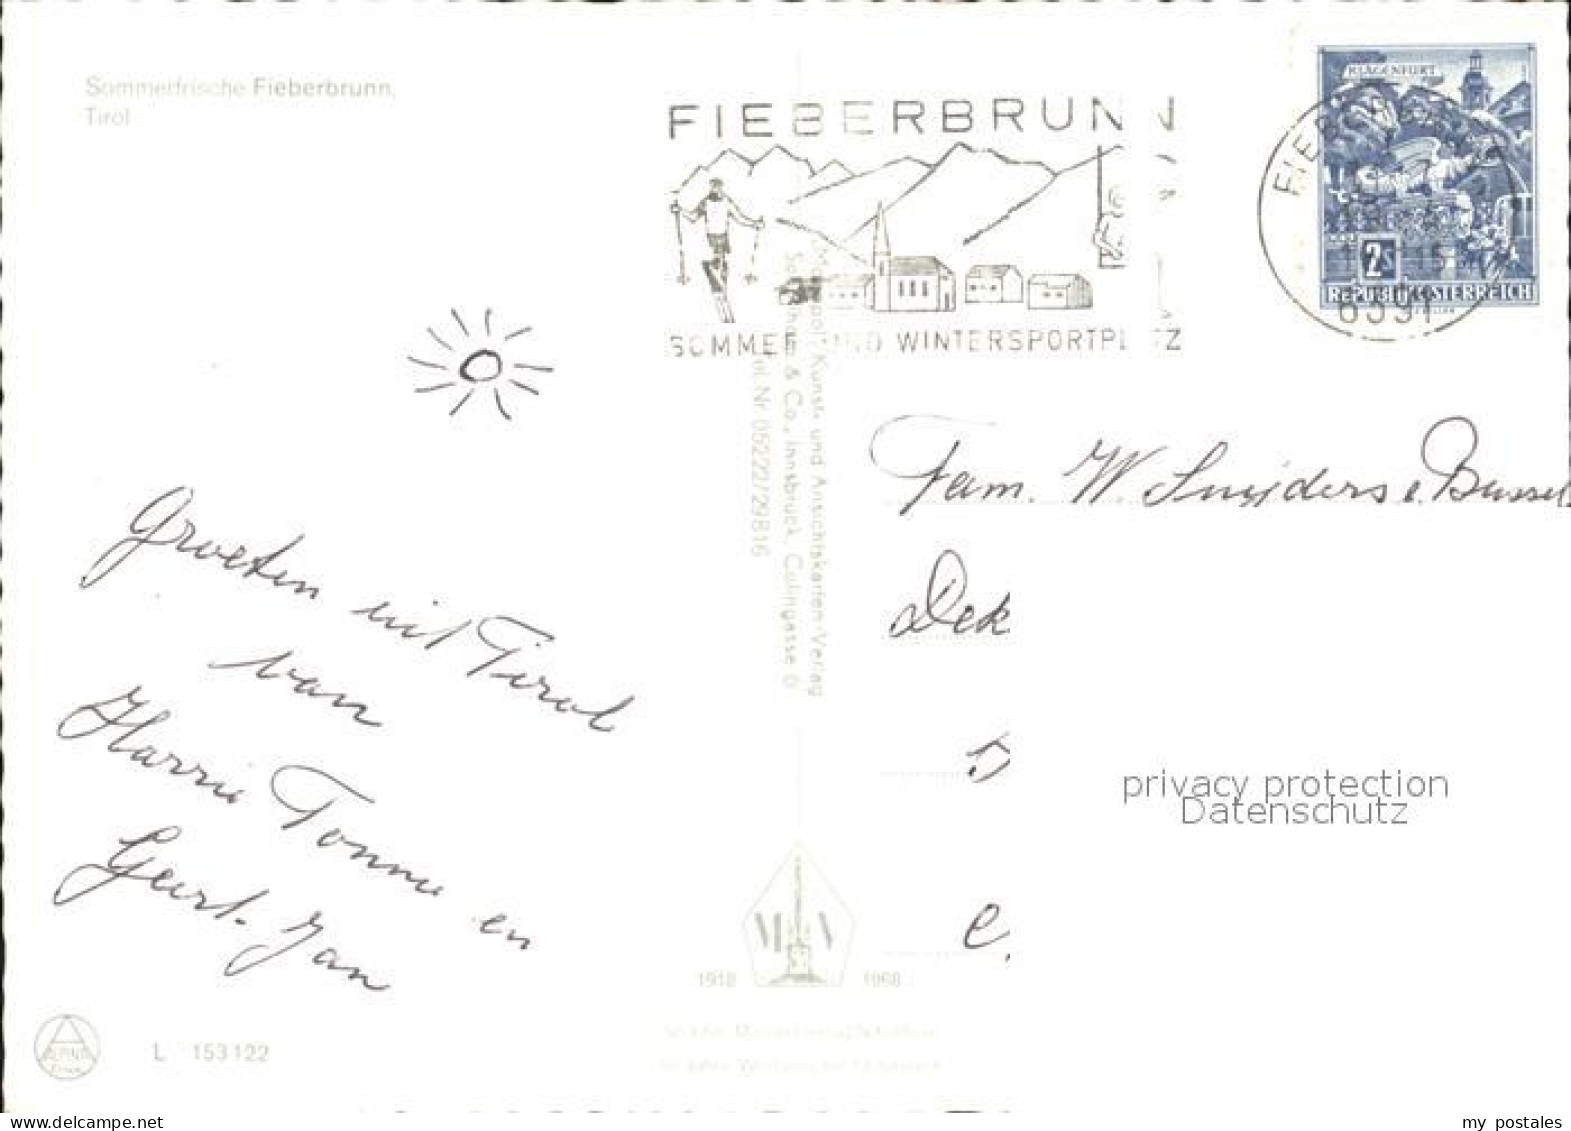 Sommerfrische Fieberbrunn,
Tirol
FIEBERBRUNN
SOMMER UND WINTERSPORTPLATZ
KLAGENFURT
2S
REPUBLIK ÖSTERREICH
6391
Groeten uit Tirol
van
Harrie Tonnie en
Geert-Jan
Fam. W. Snijders v. Bussel
Dek
e.
Kunst- und Ansichtskarten-Verlag
& Co., Innsbruck, Colingasse
Tel. Nr. 05222/29816
MV
1918 1968
ALPINA
L 153122
privacy protection
Datenschutz
my postales